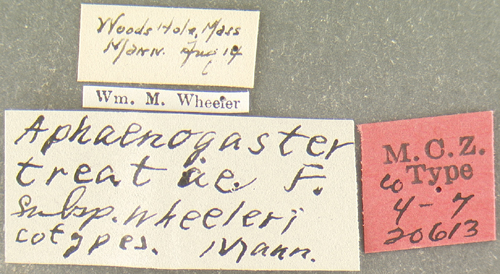 Woods Hole, Mass
Mann. Aug 14
Wm. M. Wheeler
Aphaenogaster
treatae. F.
Subsp. wheeleri
cotypes. Mann.
M.C.Z.
Co Type
4-7
20613